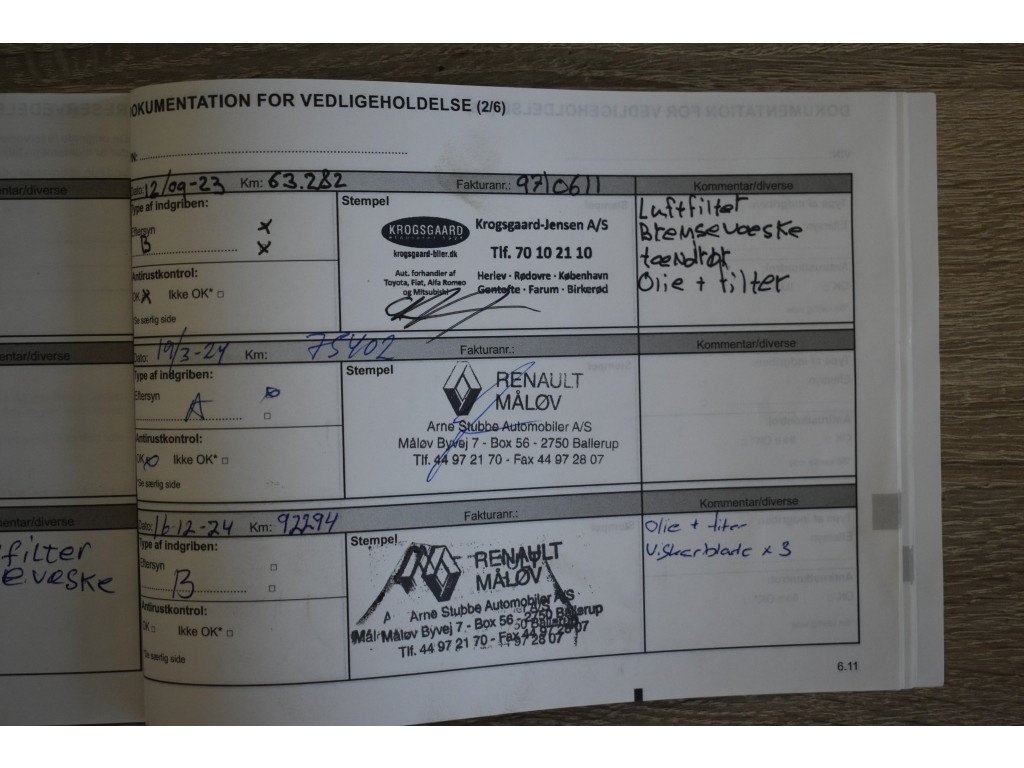 DOKUMENTATION FOR VEDLIGEHOLDELSE (2/6)
Dato: 12/09-23 Km: 63.282 Fakturanr.: 9710611
Kommentar/diverse
Type af indgriben:
Eftersyn
B
Antirustkontrol:
OK Ikke OK*
*Se særlig side
Stempel
KROGSGAARD
krogsgaard-biler.dk
Aut. forhandler af
Toyota, Fiat, Alfa Romeo
og Mitsubishi
Krogsgaard-Jensen A/S
Tlf. 70 10 21 10
Herlev · Rødovre · København
Gentofte · Farum · Birkerød
Luftfilter
Bremsevæske
tændrør
Olie + filter
Dato: 19/3-24 Km: 75402 Fakturanr.:
Kommentar/diverse
Type af indgriben:
Eftersyn
A
Antirustkontrol:
OK Ikke OK*
*Se særlig side
Stempel
RENAULT
MÅLØV
Arne Stubbe Automobiler A/S
Måløv Byvej 7 - Box 56 - 2750 Ballerup
Tlf. 44 97 21 70 - Fax 44 97 28 07
Dato: 16-12-24 Km: 92294 Fakturanr.:
Kommentar/diverse
Type af indgriben:
Eftersyn
B
Antirustkontrol:
OK Ikke OK*
*Se særlig side
Stempel
RENAULT
MÅLØV
Arne Stubbe Automobiler A/S
Måløv Byvej 7 - Box 56 - 2750 Ballerup
Tlf. 44 97 21 70 - Fax 44 97 28 07
Olie + filter
V.skerblade x 3
6.11
entar/diverse
entar/diverse
entar/diverse
filter
evæske